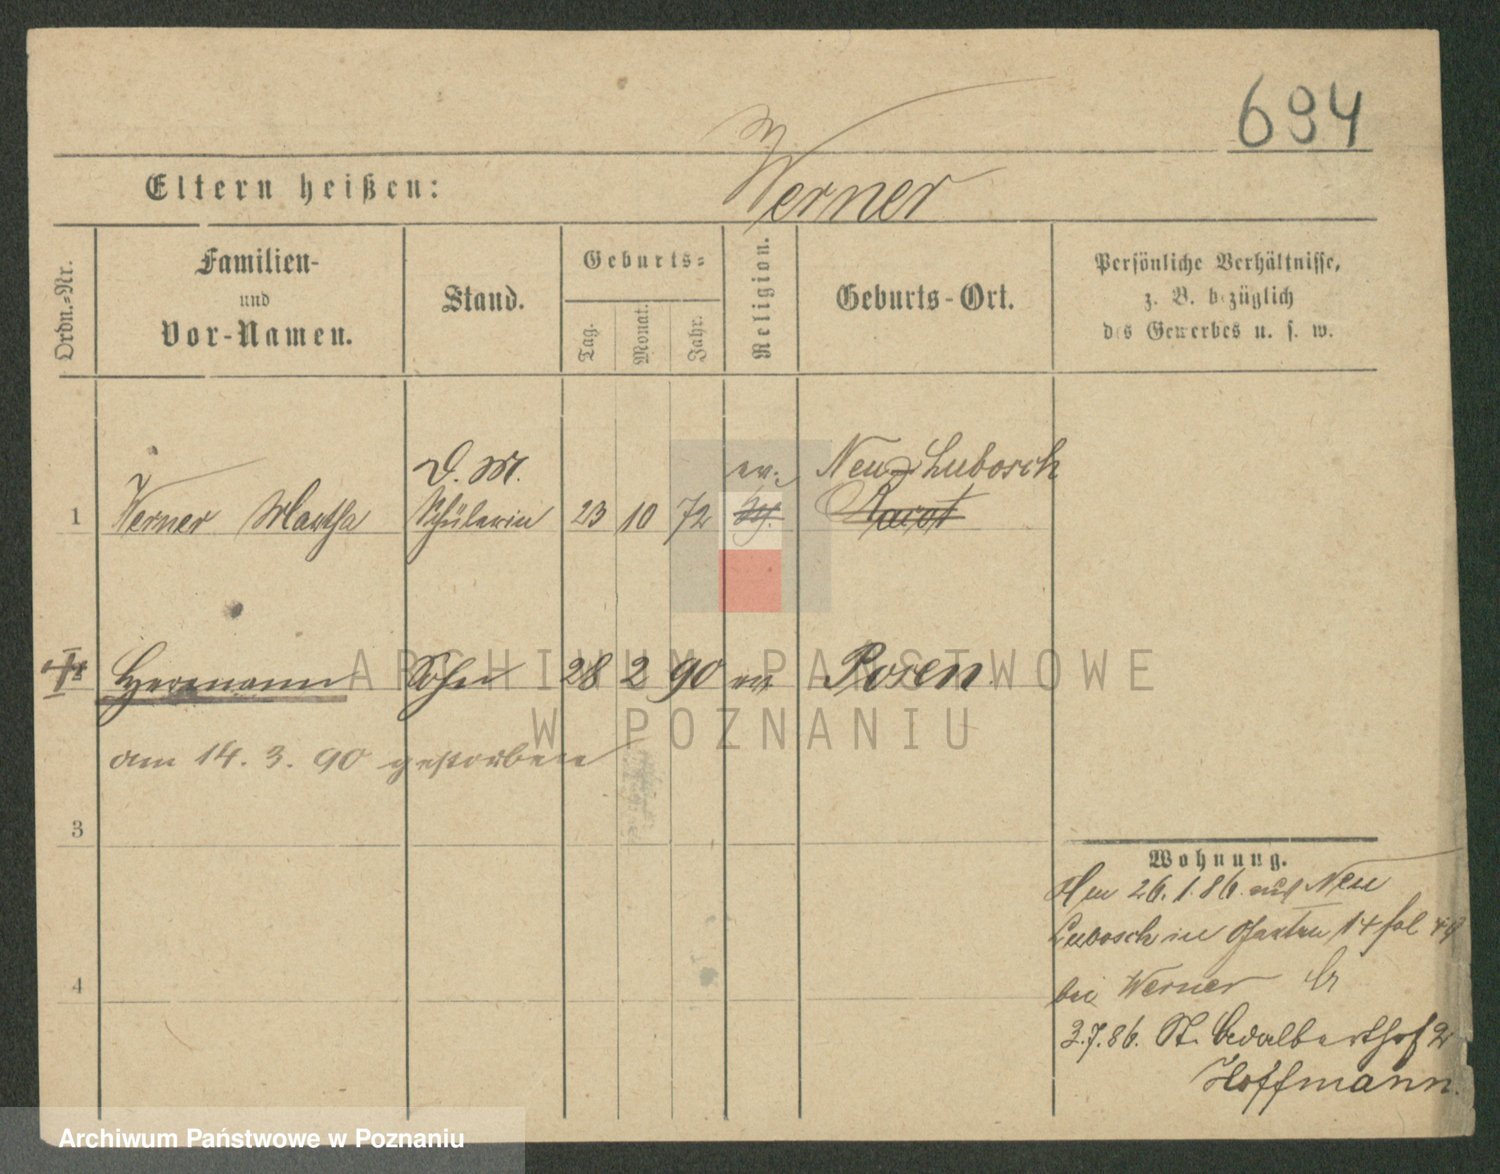 694
Eltern heißen:
Werner
Ordn.-Nr.
Familien-
und
Vor-Namen.
Stand.
Geburts-
Tag.
Monat.
Jahr.
Religion.
Geburts-Ort.
Persönliche Verhältnisse,
z. B. bezüglich
des Gewerbes u. s. w.
D. M. ev. Neu-Lubosch
1 Werner Martha Schülerin 23 10 72
Hermann Sohn 28 2 90 ev Posen
am 14. 3. 90 gestorben
3
4
Wohnung.
26.1.86. aus Neu
Lubosch in 14 fol
bei Werner
3.7.86. St. Adalberthof 2
Hoffmann.
ARCHIWUM PAŃSTWOWE
W POZNANIU
Archiwum Państwowe w Poznaniu